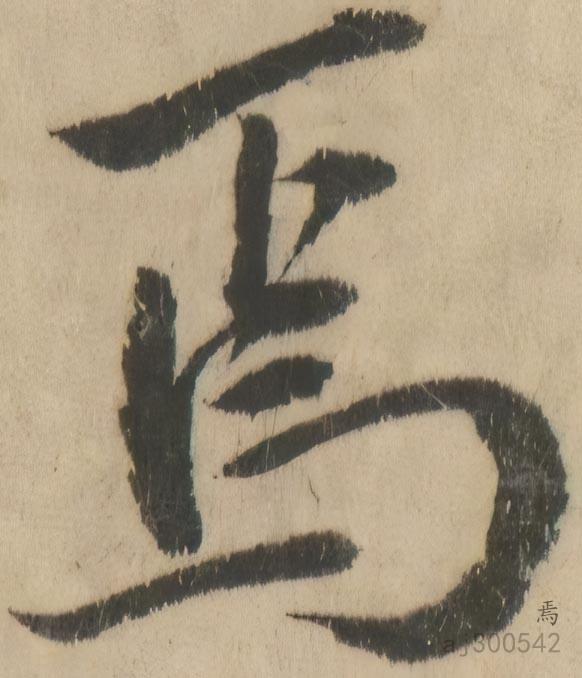 焉
焉
aj300542